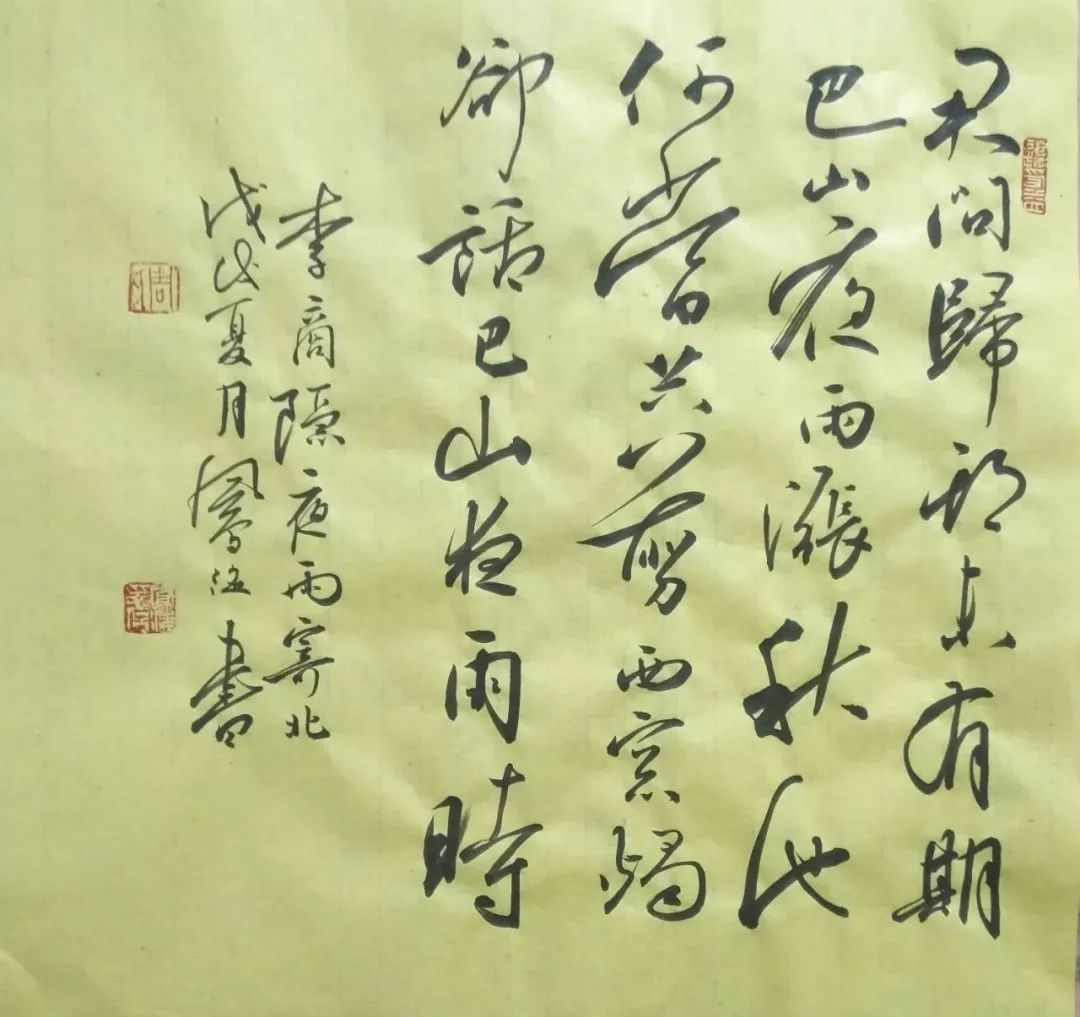 君問歸期未有期
巴山夜雨漲秋池
何當共剪西窓燭
卻話巴山夜雨時
李商隱夜雨寄北
戊戌夏月鳳書
周